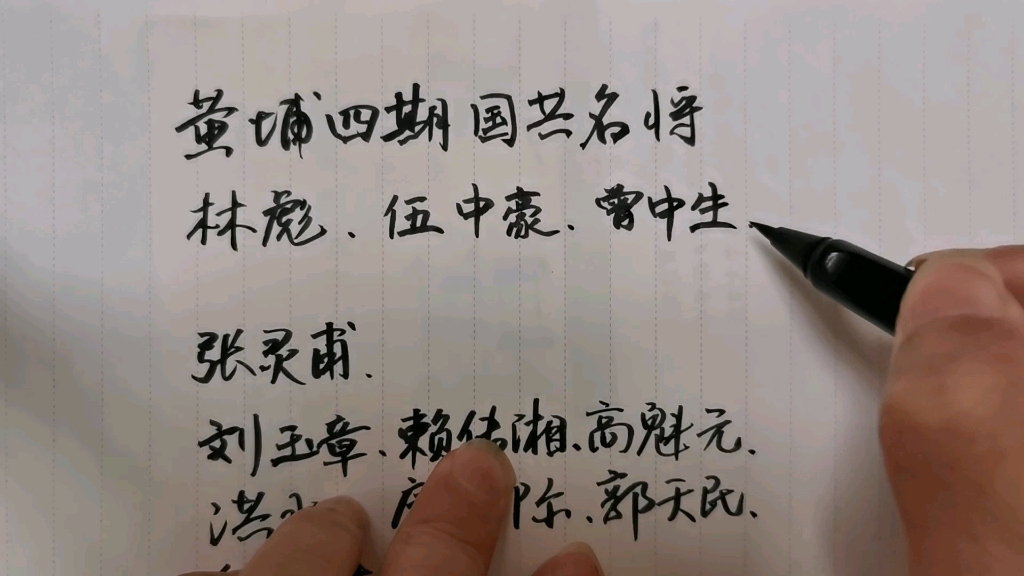 黄埔四期国共名将
林彪、伍中豪、曾中生、
张灵甫、
刘玉章、赖传湘、高魁元、
洪水 尔、郭天民、